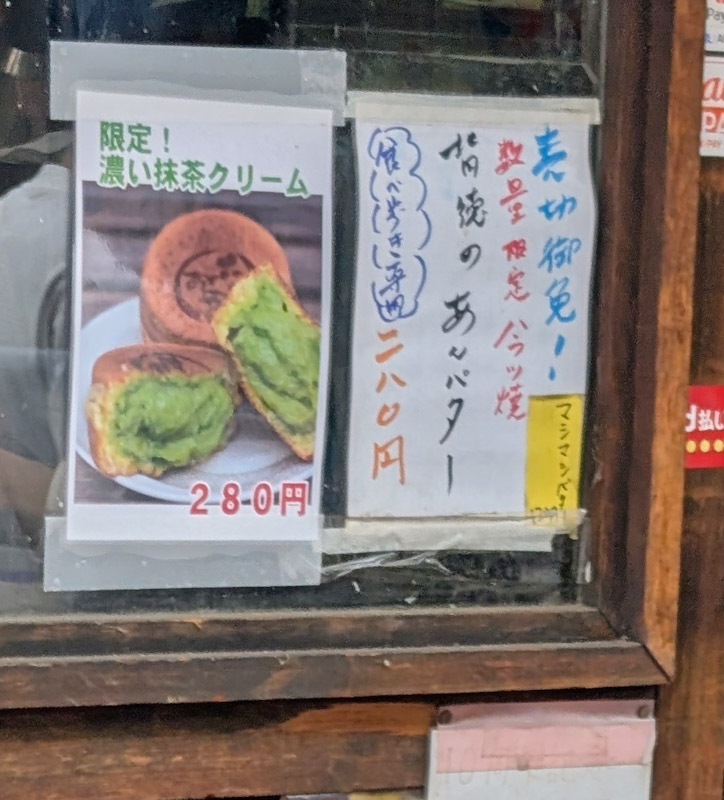 限定！
濃い抹茶クリーム
280円
売切御免！
数量限定 八ツ焼
背徳の あんバター
食べ歩き専用
二八〇円
マシマシバター
払い